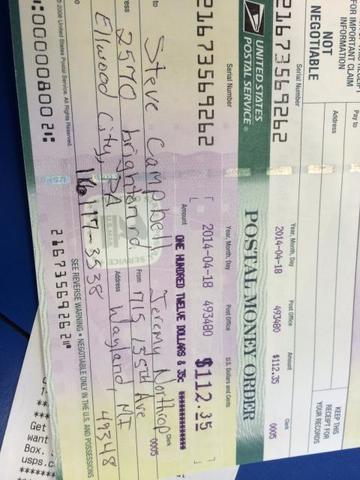 KEEP THIS
RECEIPT FOR
YOUR RECORDS
Pay to
Address
FOR IMPORTANT CLAIM
INFORMATION
NOT
NEGOTIABLE
Serial Number
Year, Month, Day
Post Office
Amount
Clerk
21673569262
2014-04-18
493480
$112.35
0005
UNITED STATES
POSTAL SERVICE®
POSTAL MONEY ORDER
Serial Number
Year, Month, Day
Post Office
U.S. Dollars and Cents
21673569262
2014-04-18
493480
$112.35
Amount
ONE HUNDRED TWELVE DOLLARS & 35c
to
Steve Campbell
From
Jeremy Northrop
Clerk
0005
Address
715 135th Ave
Wayland, MI
49348
Ellwood City, PA
16117-3538
© 2008 United States Postal Service. All Rights Reserved.
SEE REVERSE WARNING • NEGOTIABLE ONLY IN THE U.S. AND POSSESSIONS
:000008002:
21673569262
Get
want
Box.
usps.c